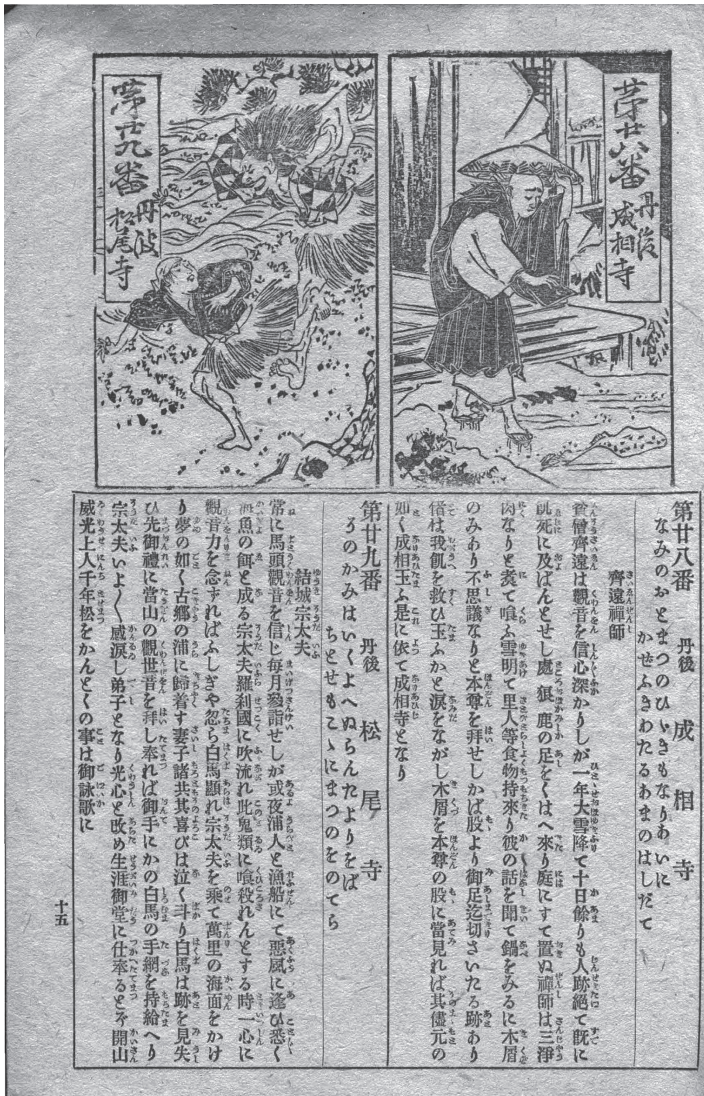 第廿八番
丹後
成相寺
第廿九番
丹波
松尾寺
第廿八番 丹後 成相寺
なみのおとまつのひゞきもなりあいに
かぜふきわたるあまのはしだて
齊遠禪師
齊遠は觀音を信心深かりしが一年大雪降て十日餘りも人跡絕て既に
飢死に及ばんとせし處 狼 鹿の足をくはへ來り庭にすて置ぬ禪師は三淨
肉なりと煑て喰ふ雪明て里人等食物持來り彼の話を聞て鍋をみるに木屑
のみわり不思議なりと本尊を拜せしかば股より御足迄切さいたる跡あり
偖は我飢を救ひ玉ふかと淚をながし木屑を本尊の股に當見れば其儘元の
如く成相玉ふ是に依て成相寺となり
第廿九番 丹後 松尾寺
そのかみはいくよへぬらんたよりをば
ちとせもこゝにまつのをのてら
結城宗太夫
常に馬頭觀音を信じ每月參詣せしが或夜浦人と漁船にて惡風に逢ひ悉く
海魚の餌と成る宗太夫羅利國に吹流れ此鬼類に喰殺れんとする時一心に
觀音力を念ずればふしぎや忽ら白馬顯れ宗太夫を乘て萬里の海面をかけ
り夢の如く古鄉の浦に歸着す妻子諸共其喜びは泣く斗り白馬は跡を見失
ひ先御禮に當山の觀世音を拜し奉れば御手にかの白馬の手綱を持給へり
宗太夫いよ〱感淚し弟子となり光心と改め生涯御堂に仕奉るとぞ開山
威光上人千年松をかんとくの事は御詠歌に
十五